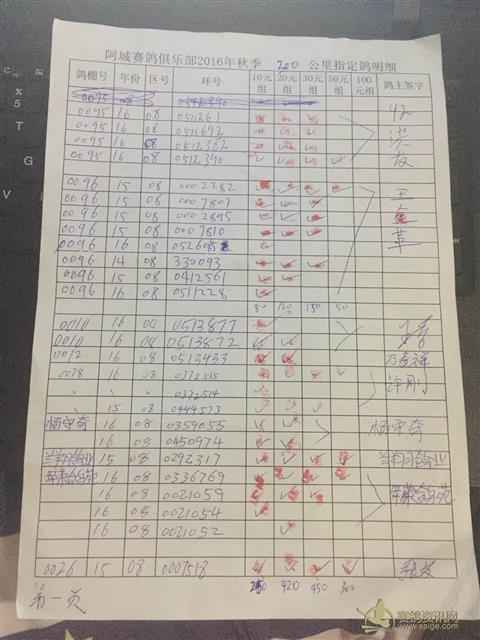 阿城赛鸽俱乐部2016年秋季 200 公里指定鸽明细
鸽棚号 年份 区号 环号 10元组 20元组 30元组 50元组 100元组 鸽主签字
0095 08
0095 16 08 0511261
0095 16 08 0511692 洪
0095 16 08 0512362 友
0095 16 08 0512390
0096 15 08 0002282 王
0096 15 08 0007807 金
0096 15 08 0002895 革
0096 15 08 0007810
0096 16 08 052605
0096 14 08 330093
0096 15 08 0412561
0096 16 08 0511228
80 120 150 50
0010 16 08 0513877
0010 16 08 0513872
0012 16 08 0513433
0078 16 08 0372515 许刚
、 、 0372514
、 15 08 0444573
杨守奇 16 08 0359055 杨守奇
16 08 0450974
15 08 0292317
16 08 0336769
16 08 0021059
16 08 0021054
16 08 0021052
0026 15 08 0007518
420 450 300
第一页
赛鸽资讯网
www.saige.com